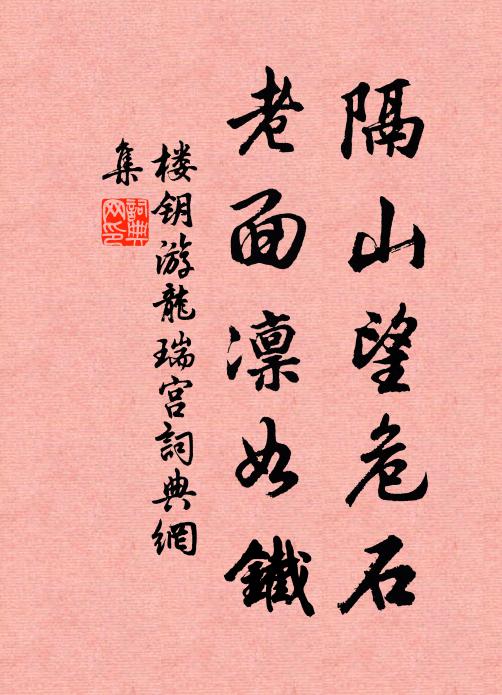 隔山望危石
老面凛如鐵
楼钥游龍瑞宫詞典網
集
詞典
网印